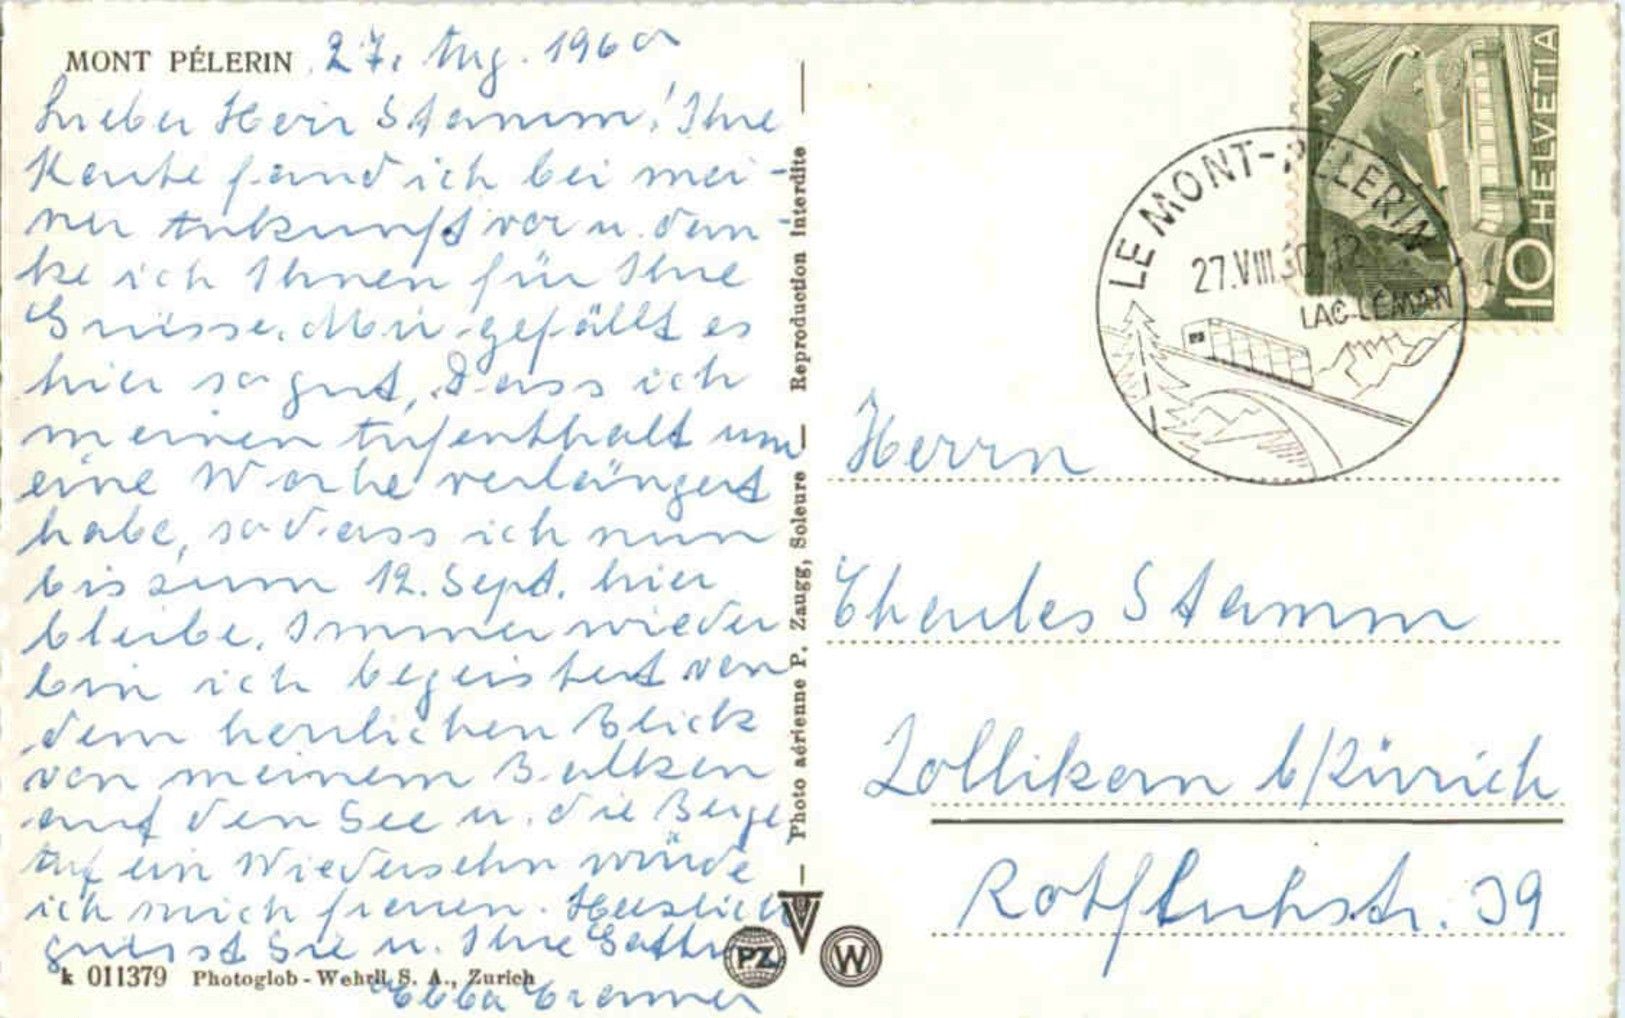 MONT PÉLERIN 27. Aug. 1960
Lieber Herr Stamm! Ihre
Karte fand ich bei mei-
ner Ankunft vor u. dan-
ke ich Ihnen für Ihre
Grüsse. Mir gefällt es
hier so gut, dass ich
meinen Aufenthalt um
eine Woche verlängert
habe, sodass ich nun
bis zum 12. Sept. hier
bleibe. Immer wieder
bin ich begeistert von
dem herrlichen Blick
von meinem Balkon
auf den See u. die Berge
Auf ein Wiedersehn würde
ich mich freuen. Herzlich
grüsst Sie u. Ihre Gattin
Ebba
k 011379 Photoglob - Wehrli S. A., Zurich
Photo aérienne P. Zaugg, Soleure — Reproduction interdite
PZ
W
HELVETIA
10
LE MONT-PELERIN
27.VIII.60-12
LAC LEMAN
Herrn
Charles Stamm
Zollikon b/Zürich
Rotfluhstr. 39